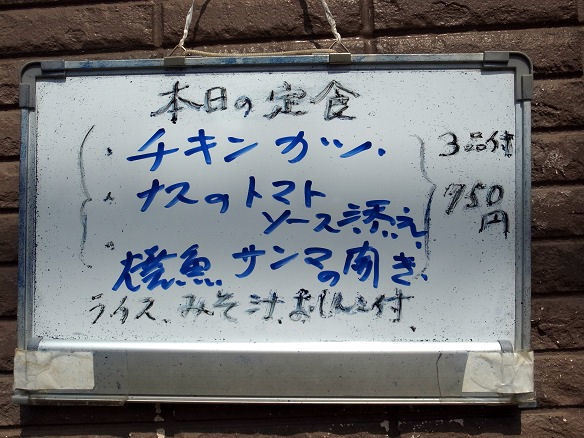 本日の定食
・チキンカツ・
・ナスのトマト
ソース添え
・焼魚 サンマの開き・
3品付
750
円
ライス、みそ汁、おしんこ付